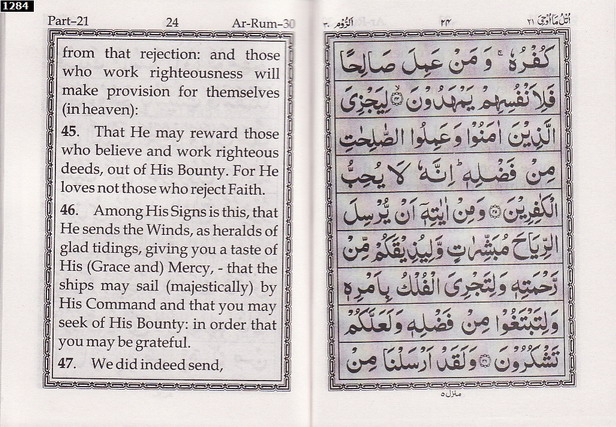 1284
Part-21 24 Ar-Rum-30
from that rejection: and those
who work righteousness will
make provision for themselves
(in heaven):
45. That He may reward those
who believe and work righteous
deeds, out of His Bounty. For He
loves not those who reject Faith.
46. Among His Signs is this, that
He sends the Winds, as heralds of
glad tidings, giving you a taste of
His (Grace and) Mercy, - that the
ships may sail (majestically) by
His Command and that you may
seek of His Bounty: in order that
you may be grateful.
47. We did indeed send,
اتل ما اوحی ۲۱ ۲۴ الروم ۳۰
كُفْرُهٗ ۚ وَ مَنْ عَمِلَ صَالِحًا
فَلِاَنْفُسِهِمْ يَمْهَدُوْنَ ﴿۴۴﴾ لِيَجْزِىَ
الَّذِيْنَ اٰمَنُوْا وَعَمِلُوا الصّٰلِحٰتِ
مِنْ فَضْلِهٖ ؕ اِنَّهٗ لَا يُحِبُّ
الْكٰفِرِيْنَ ﴿۴۵﴾ وَمِنْ اٰيٰتِهٖٓ اَنْ يُّرْسِلَ
الرِّيَاحَ مُبَشِّرٰتٍ وَّلِيُذِيْقَكُمْ مِّنْ
رَّحْمَتِهٖ وَلِتَجْرِىَ الْفُلْكُ بِاَمْرِهٖ
وَلِتَبْتَغُوْا مِنْ فَضْلِهٖ وَلَعَلَّكُمْ
تَشْكُرُوْنَ ﴿۴۶﴾ وَلَقَدْ اَرْسَلْنَا مِنْ
منزل ۵